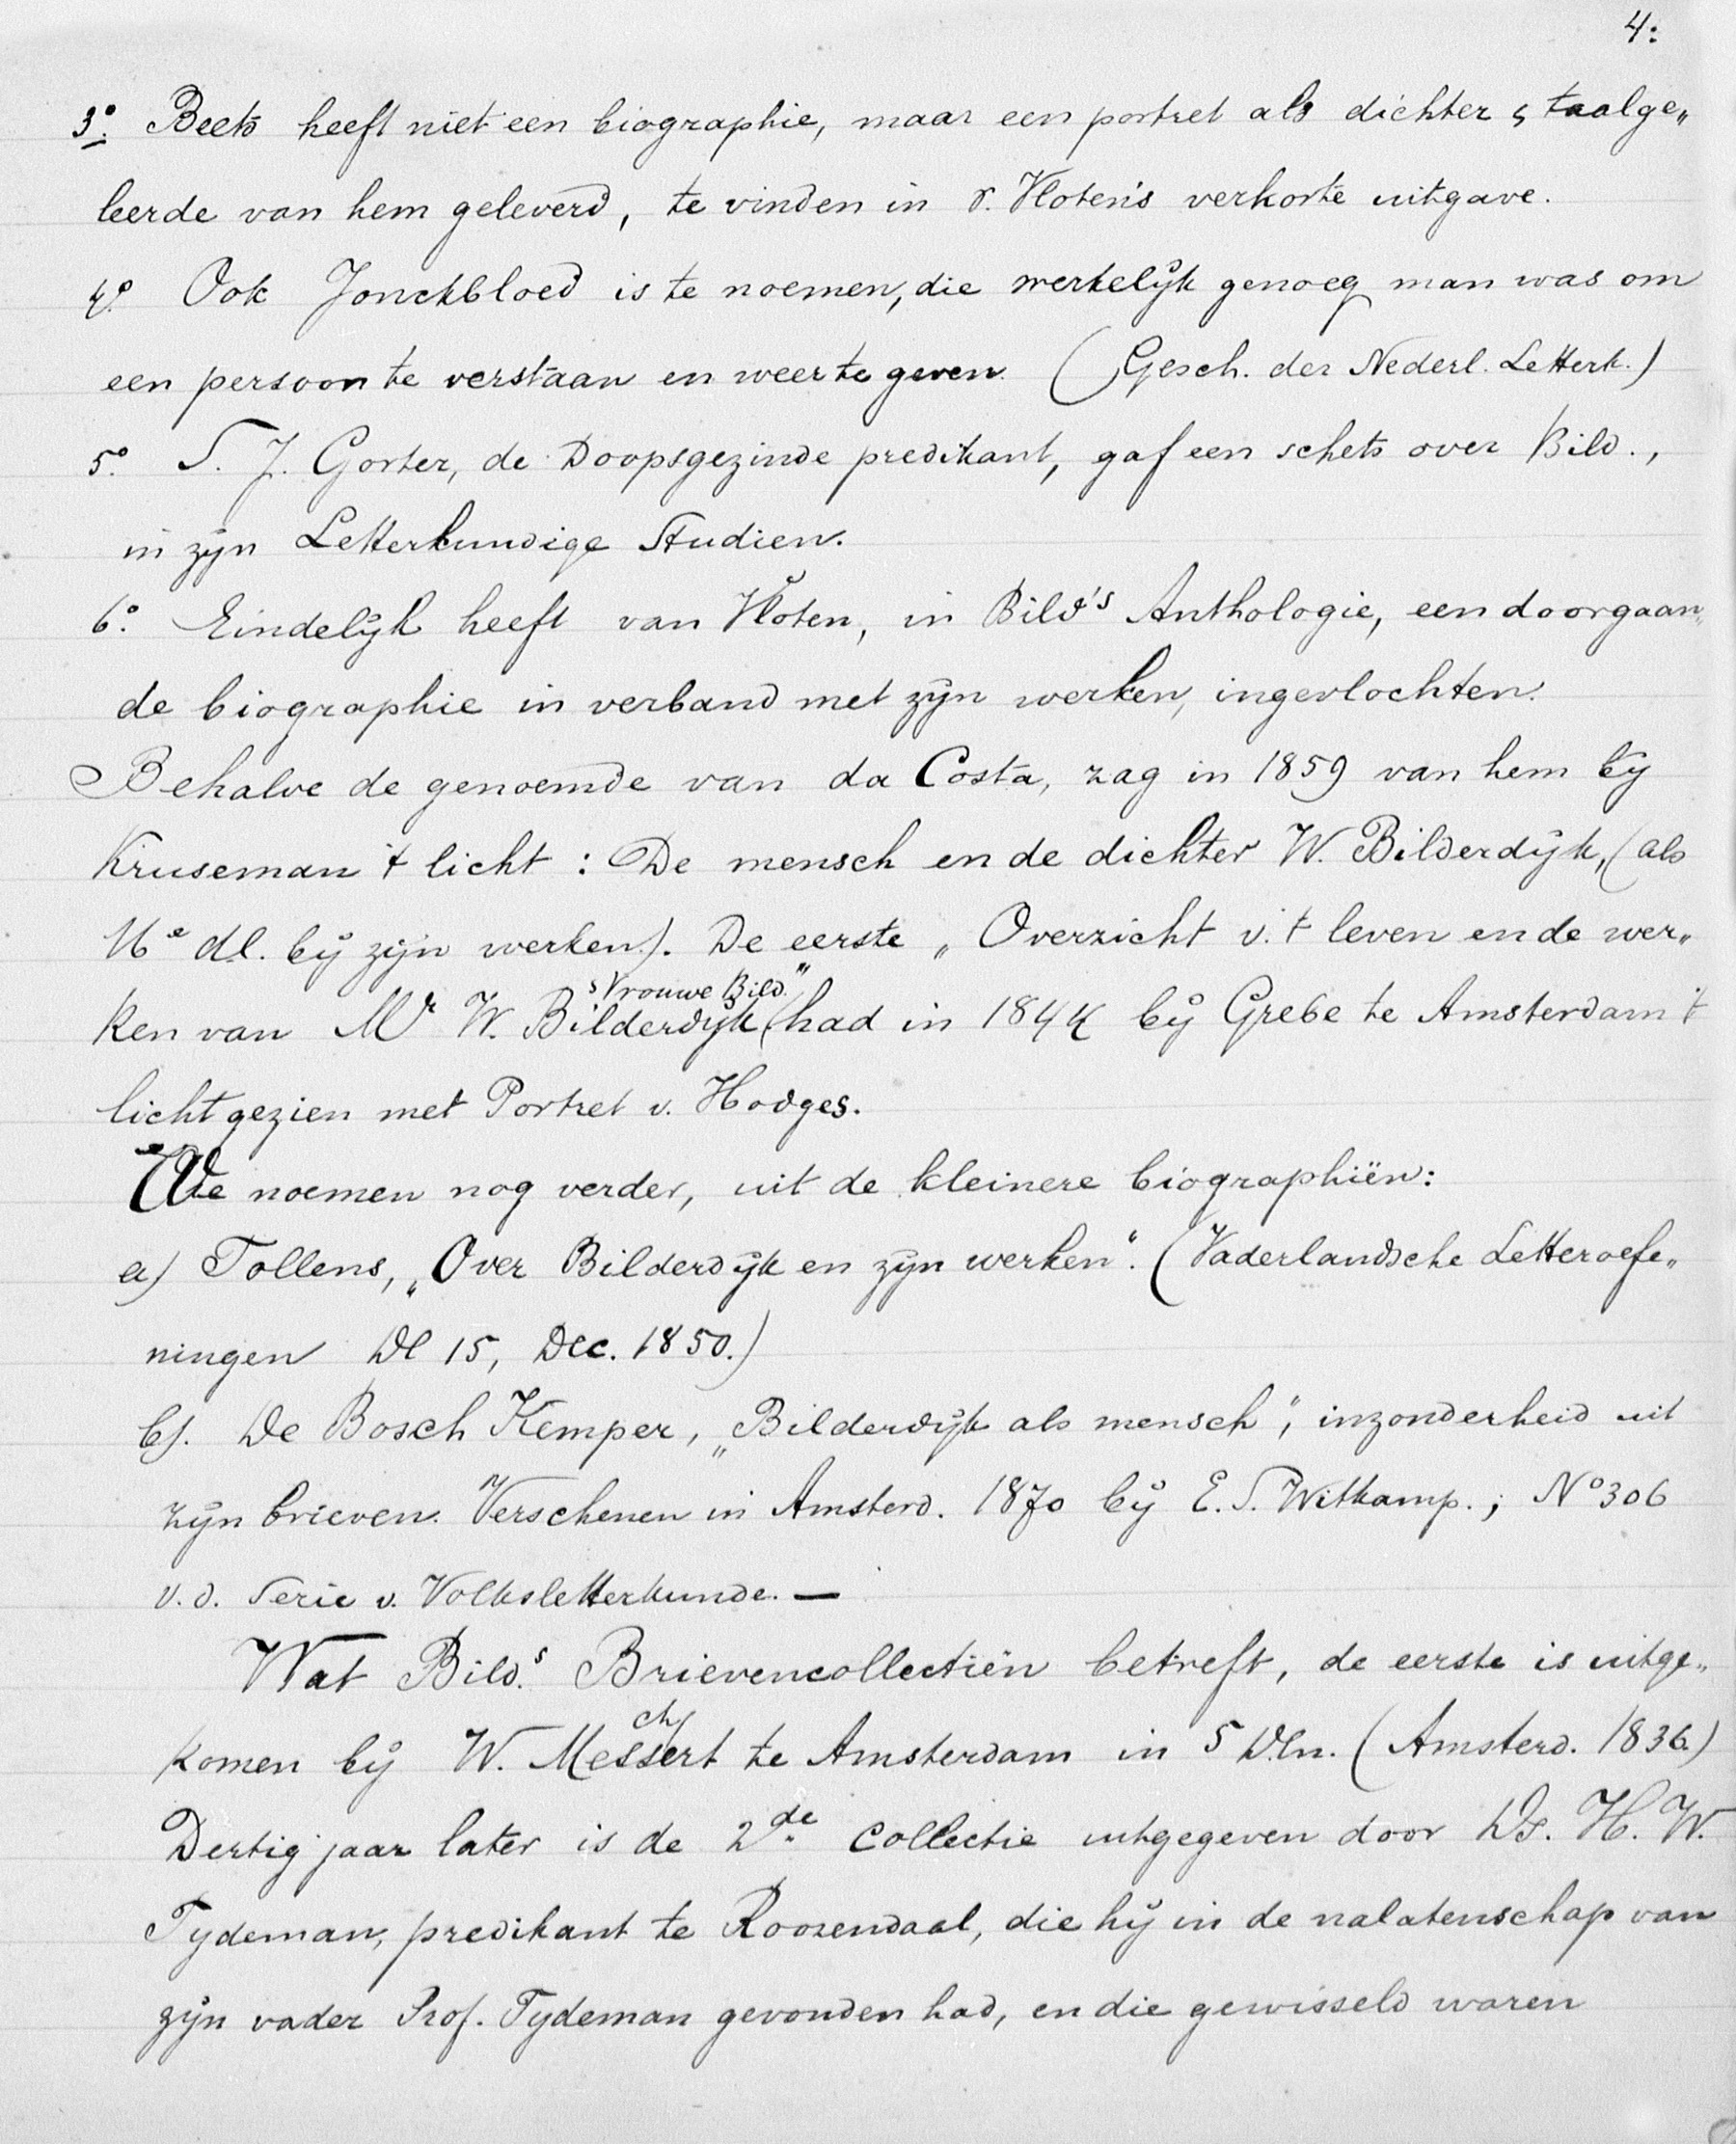 4:
3º. Beets heeft niet een biographie, maar een portret als dichter & taalge„
leerde van hem geleverd, te vinden in v. Vloten's verkorte uitgave.
4º. Ook Jonckbloed is te noemen, die werkelijk genoeg man was om
een persoon te verstaan en weer te geven. (Gesch. der Nederl. Letterk.)
5º. S. J. Gorter, de Doopsgezinde predikant, gaf een schets over Bild.,
in zijn Letterkundige Studien.
6º. Eindelijk heeft van Vloten, in Bild's Anthologie, een doorgaan„
de biographie in verband met zijn werken, ingevlochten.
Behalve de genoemde van da Costa, zag in 1859 van hem bij
Kruseman 't licht: De mensch en de dichter W. Bilderdijk, (als
16e dl. bij zijn werken). De eerste „Overzicht v. 't leven en de wer„
's Vrouwe Bild."
ken van Mr W. Bilderdijk (had in 1844 bij Grebe te Amsterdam 't
licht gezien met Portret v. Hodges.
We noemen nog verder, uit de kleinere biographiën:
a) Tollens, „Over Bilderdijk en zijn werken". (Vaderlandsche Letteroefe„
ningen Dl 15, Dec. 1850.)
b). De Bosch Kemper, „Bilderdijk als mensch", inzonderheid uit
zijn brieven. Verschenen in Amsterd. 1870 bij E. S. Witkamp.; Nº 306
v.d. Serie v. Volksletterkunde. —
Wat Bild.s Brievencollectiën betreft, de eerste is uitge„
ch
komen bij W. Messert te Amsterdam in 5 Dln. (Amsterd. 1836.)
Dertig jaar later is de 2de collectie uitgegeven door Ds. H. W.
Tydeman, predikant te Roozendaal, die hij in de nalatenschap van
zijn vader Prof. Tydeman gevonden had, en die gewisseld waren